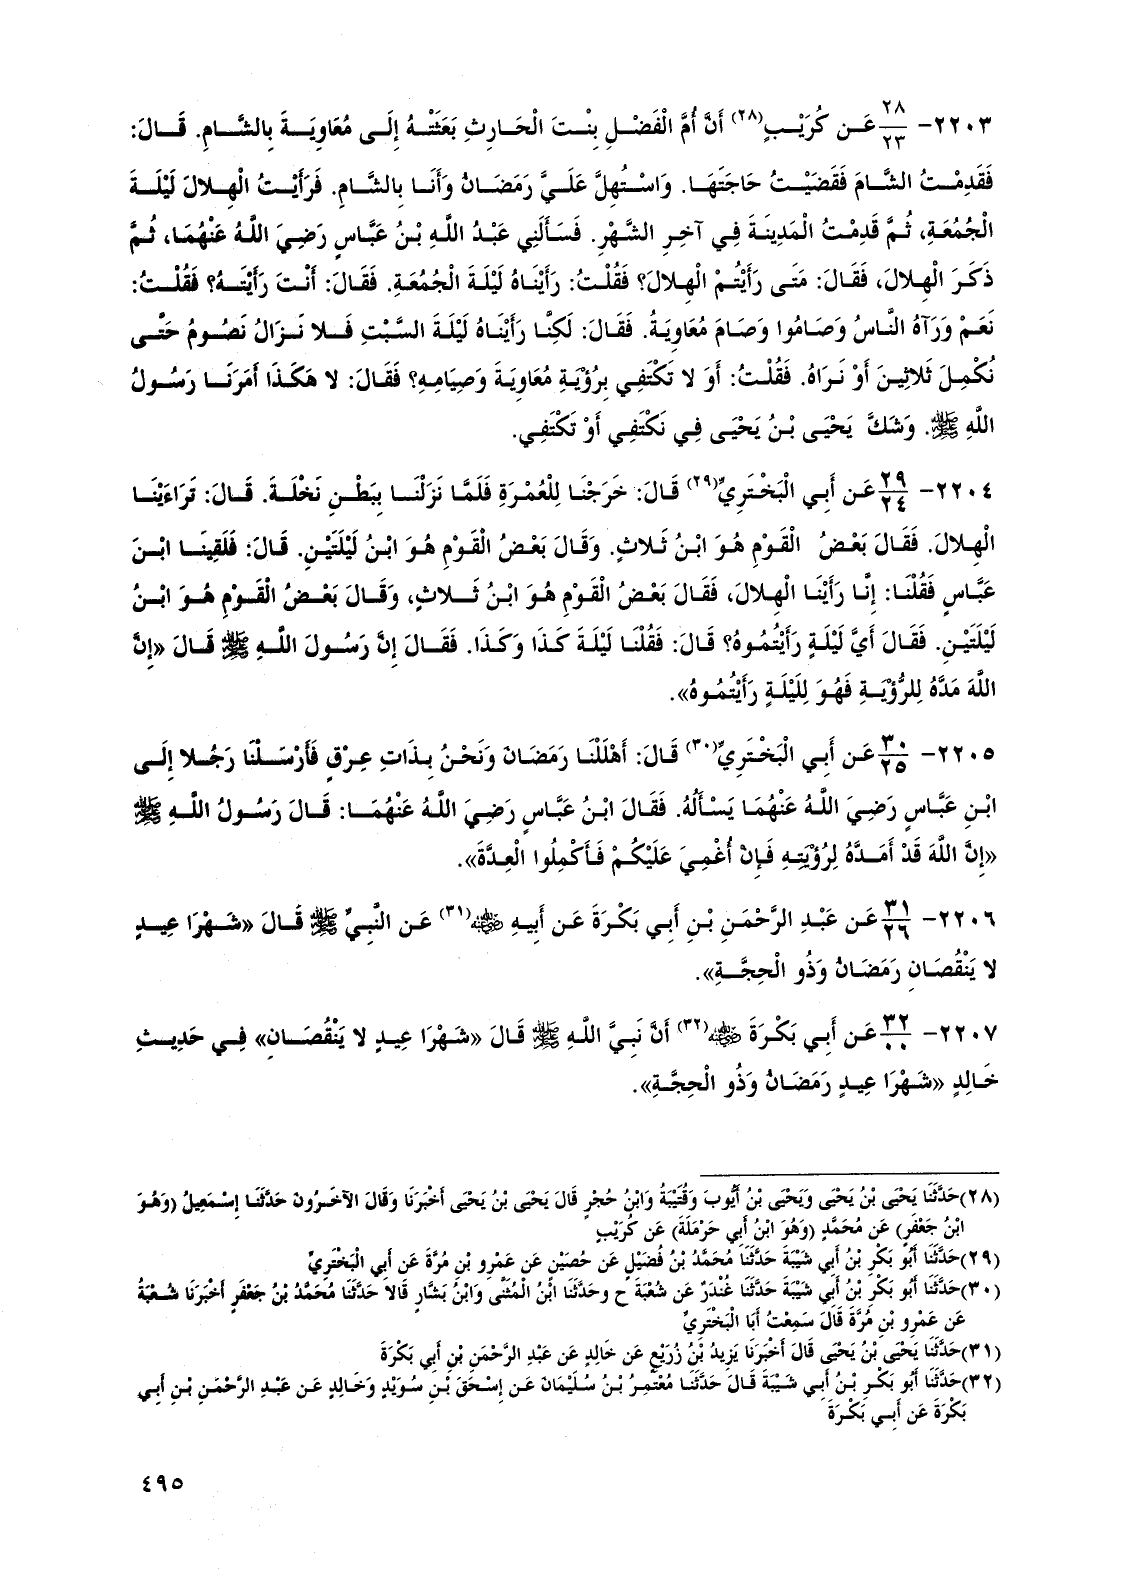 ٢٢٠٣- ٢٨/٢٣ عَن كُرَيْبٍ(٢٨) أَنَّ أُمَّ الْفَضْلِ بِنْتَ الْحَارِثِ بَعَثَتْهُ إِلَى مُعَاوِيَةَ بِالشَّامِ. قَالَ:
فَقَدِمْتُ الشَّامَ فَقَضَيْتُ حَاجَتَهَا. وَاسْتُهِلَّ عَلَيَّ رَمَضَانُ وَأَنَا بِالشَّامِ. فَرَأَيْتُ الْهِلَالَ لَيْلَةَ
الْجُمُعَةِ، ثُمَّ قَدِمْتُ الْمَدِينَةَ فِي آخِرِ الشَّهْرِ. فَسَأَلَنِي عَبْدُ اللَّهِ بْنُ عَبَّاسٍ رَضِيَ اللَّهُ عَنْهُمَا، ثُمَّ
ذَكَرَ الْهِلَالَ، فَقَالَ: مَتَى رَأَيْتُمْ الْهِلَالَ؟ فَقُلْتُ: رَأَيْنَاهُ لَيْلَةَ الْجُمُعَةِ. فَقَالَ: أَنْتَ رَأَيْتَهُ؟ فَقُلْتُ:
نَعَمْ وَرَآهُ النَّاسُ وَصَامُوا وَصَامَ مُعَاوِيَةُ. فَقَالَ: لَكِنَّا رَأَيْنَاهُ لَيْلَةَ السَّبْتِ فَلَا نَزَالُ نَصُومُ حَتَّى
نُكْمِلَ ثَلَاثِينَ أَوْ نَرَاهُ. فَقُلْتُ: أَوَ لَا تَكْتَفِي بِرُؤْيَةِ مُعَاوِيَةَ وَصِيَامِهِ؟ فَقَالَ: لَا هَكَذَا أَمَرَنَا رَسُولُ
اللَّهِ ﷺ. وَشَكَّ يَحْيَى بْنُ يَحْيَى فِي نَكْتَفِي أَوْ تَكْتَفِي.
٢٢٠٤- ٢٩/٢٤ عَن أَبِي الْبَخْتَرِيِّ(٢٩) قَالَ: خَرَجْنَا لِلْعُمْرَةِ فَلَمَّا نَزَلْنَا بِبَطْنِ نَخْلَةَ. قَالَ: تَرَاءَيْنَا
الْهِلَالَ. فَقَالَ بَعْضُ الْقَوْمِ هُوَ ابْنُ ثَلَاثٍ. وَقَالَ بَعْضُ الْقَوْمِ هُوَ ابْنُ لَيْلَتَيْنِ. قَالَ: فَلَقِينَا ابْنَ
عَبَّاسٍ فَقُلْنَا: إِنَّا رَأَيْنَا الْهِلَالَ، فَقَالَ بَعْضُ الْقَوْمِ هُوَ ابْنُ ثَلَاثٍ، وَقَالَ بَعْضُ الْقَوْمِ هُوَ ابْنُ
لَيْلَتَيْنِ. فَقَالَ أَيَّ لَيْلَةٍ رَأَيْتُمُوهُ؟ قَالَ: فَقُلْنَا لَيْلَةَ كَذَا وَكَذَا. فَقَالَ إِنَّ رَسُولَ اللَّهِ ﷺ قَالَ «إِنَّ
اللَّهَ مَدَّهُ لِلرُّؤْيَةِ فَهُوَ لِلَيْلَةِ رَأَيْتُمُوهُ».
٢٢٠٥- ٣٠/٢٥ عَن أَبِي الْبَخْتَرِيِّ(٣٠) قَالَ: أَهْلَلْنَا رَمَضَانَ وَنَحْنُ بِذَاتِ عِرْقٍ فَأَرْسَلْنَا رَجُلًا إِلَى
ابْنِ عَبَّاسٍ رَضِيَ اللَّهُ عَنْهُمَا يَسْأَلُهُ. فَقَالَ ابْنُ عَبَّاسٍ رَضِيَ اللَّهُ عَنْهُمَا: قَالَ رَسُولُ اللَّهِ ﷺ
«إِنَّ اللَّهَ قَدْ أَمَدَّهُ لِرُؤْيَتِهِ فَإِنْ أُغْمِيَ عَلَيْكُمْ فَأَكْمِلُوا الْعِدَّةَ».
٢٢٠٦- ٣١/٢٦ عَن عَبْدِ الرَّحْمَنِ بْنِ أَبِي بَكْرَةَ عَن أَبِيهِ رضي الله عنه(٣١) عَن النَّبِيِّ ﷺ قَالَ «شَهْرَا عِيدٍ
لَا يَنْقُصَانِ رَمَضَانُ وَذُو الْحِجَّةِ».
٢٢٠٧- ٣٢/٠٠ عَن أَبِي بَكْرَةَ رضي الله عنه(٣٢) أَنَّ نَبِيَّ اللَّهِ ﷺ قَالَ «شَهْرَا عِيدٍ لَا يَنْقُصَانِ» فِي حَدِيثِ
خَالِدٍ «شَهْرَا عِيدٍ رَمَضَانُ وَذُو الْحِجَّةِ».
(٢٨)حَدَّثَنَا يَحْيَى بْنُ يَحْيَى وَيَحْيَى بْنُ أَيُّوبَ وَقُتَيْبَةُ وَابْنُ حُجْرٍ قَالَ يَحْيَى بْنُ يَحْيَى أَخْبَرَنَا وَقَالَ الْآخَرُونَ حَدَّثَنَا إِسْمَعِيلُ (وَهُوَ
ابْنُ جَعْفَرٍ) عَن مُحَمَّدٍ (وَهُوَ ابْنُ أَبِي حَرْمَلَةَ) عَن كُرَيْبٍ
(٢٩)حَدَّثَنَا أَبُو بَكْرِ بْنُ أَبِي شَيْبَةَ حَدَّثَنَا مُحَمَّدُ بْنُ فُضَيْلٍ عَن حُصَيْنٍ عَن عَمْرِو بْنِ مُرَّةَ عَن أَبِي الْبَخْتَرِيِّ
(٣٠)حَدَّثَنَا أَبُو بَكْرِ بْنُ أَبِي شَيْبَةَ حَدَّثَنَا غُنْدَرٌ عَن شُعْبَةَ ح وحَدَّثَنَا ابْنُ الْمُثَنَّى وَابْنُ بَشَّارٍ قَالَا حَدَّثَنَا مُحَمَّدُ بْنُ جَعْفَرٍ أَخْبَرَنَا شُعْبَةُ
عَن عَمْرِو بْنِ مُرَّةَ قَالَ سَمِعْتُ أَبَا الْبَخْتَرِيِّ
(٣١)حَدَّثَنَا يَحْيَى بْنُ يَحْيَى قَالَ أَخْبَرَنَا يَزِيدُ بْنُ زُرَيْعٍ عَن خَالِدٍ عَن عَبْدِ الرَّحْمَنِ بْنِ أَبِي بَكْرَةَ
(٣٢)حَدَّثَنَا أَبُو بَكْرِ بْنُ أَبِي شَيْبَةَ قَالَ حَدَّثَنَا مُعْتَمِرُ بْنُ سُلَيْمَانَ عَن إِسْحَقَ بْنِ سُوَيْدٍ وَخَالِدٍ عَن عَبْدِ الرَّحْمَنِ بْنِ أَبِي
بَكْرَةَ عَن أَبِي بَكْرَةَ
٤٩٥